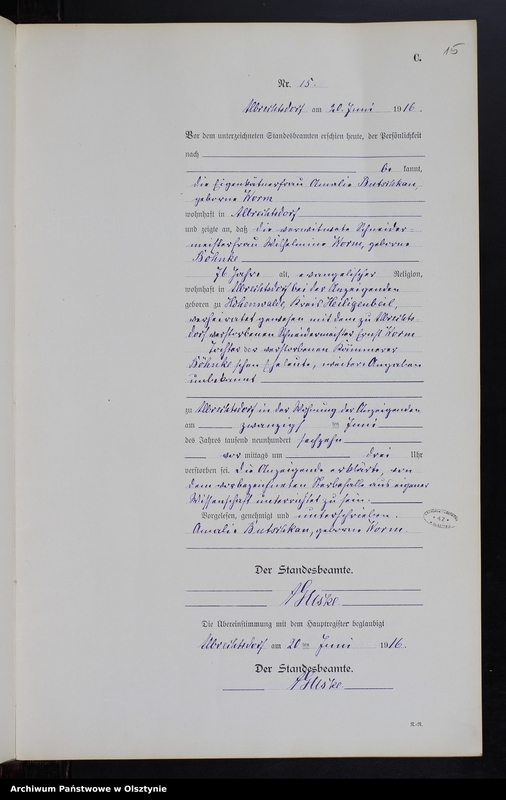 15
C.
Nr. 15.
Albrechtsdorf am 20. Juni 1916.
Vor dem unterzeichneten Standesbeamten erschien heute, der Persönlichkeit
nach
be kannt,
die Eigenkätnerfrau Amalie
geborene Worm
wohnhaft in Albrechtsdorf
und zeigte an, daß die verwitwete Schneider=
meisterfrau Wilhelmine Worm, geborne
Böhnke
76 Jahre alt, evangelischer Religion,
wohnhaft in Albrechtsdorf bei der Anzeigenden
geboren zu Hohenwalde, Kreis Heiligenbeil,
verheiratet gewesen mit dem zu Albrechts
dorf verstorbenen Schneidermeister Ernst Worm
Tochter der verstorbenen Kämmerer
Böhnke'schen Eheleute, weitere Angaben
unbekannt
zu Albrechtsdorf in der Wohnung der Anzeigenden
am zwanzigsten Juni
des Jahres tausend neunhundert sechzehn
vor mittags um drei Uhr
verstorben sei. Die Anzeigende erklärte, von
dem vorbezeichneten Sterbefalle aus eigener
Wissenschaft unterrichtet zu sein.
Vorgelesen, genehmigt und unterschrieben.
Amalie geborne Worm
Der Standesbeamte.
Die Übereinstimmung mit dem Hauptregister beglaubigt
Albrechtsdorf am 20 ten Juni 1916.
Der Standesbeamte.
Archiwum Państwowe w Olsztynie